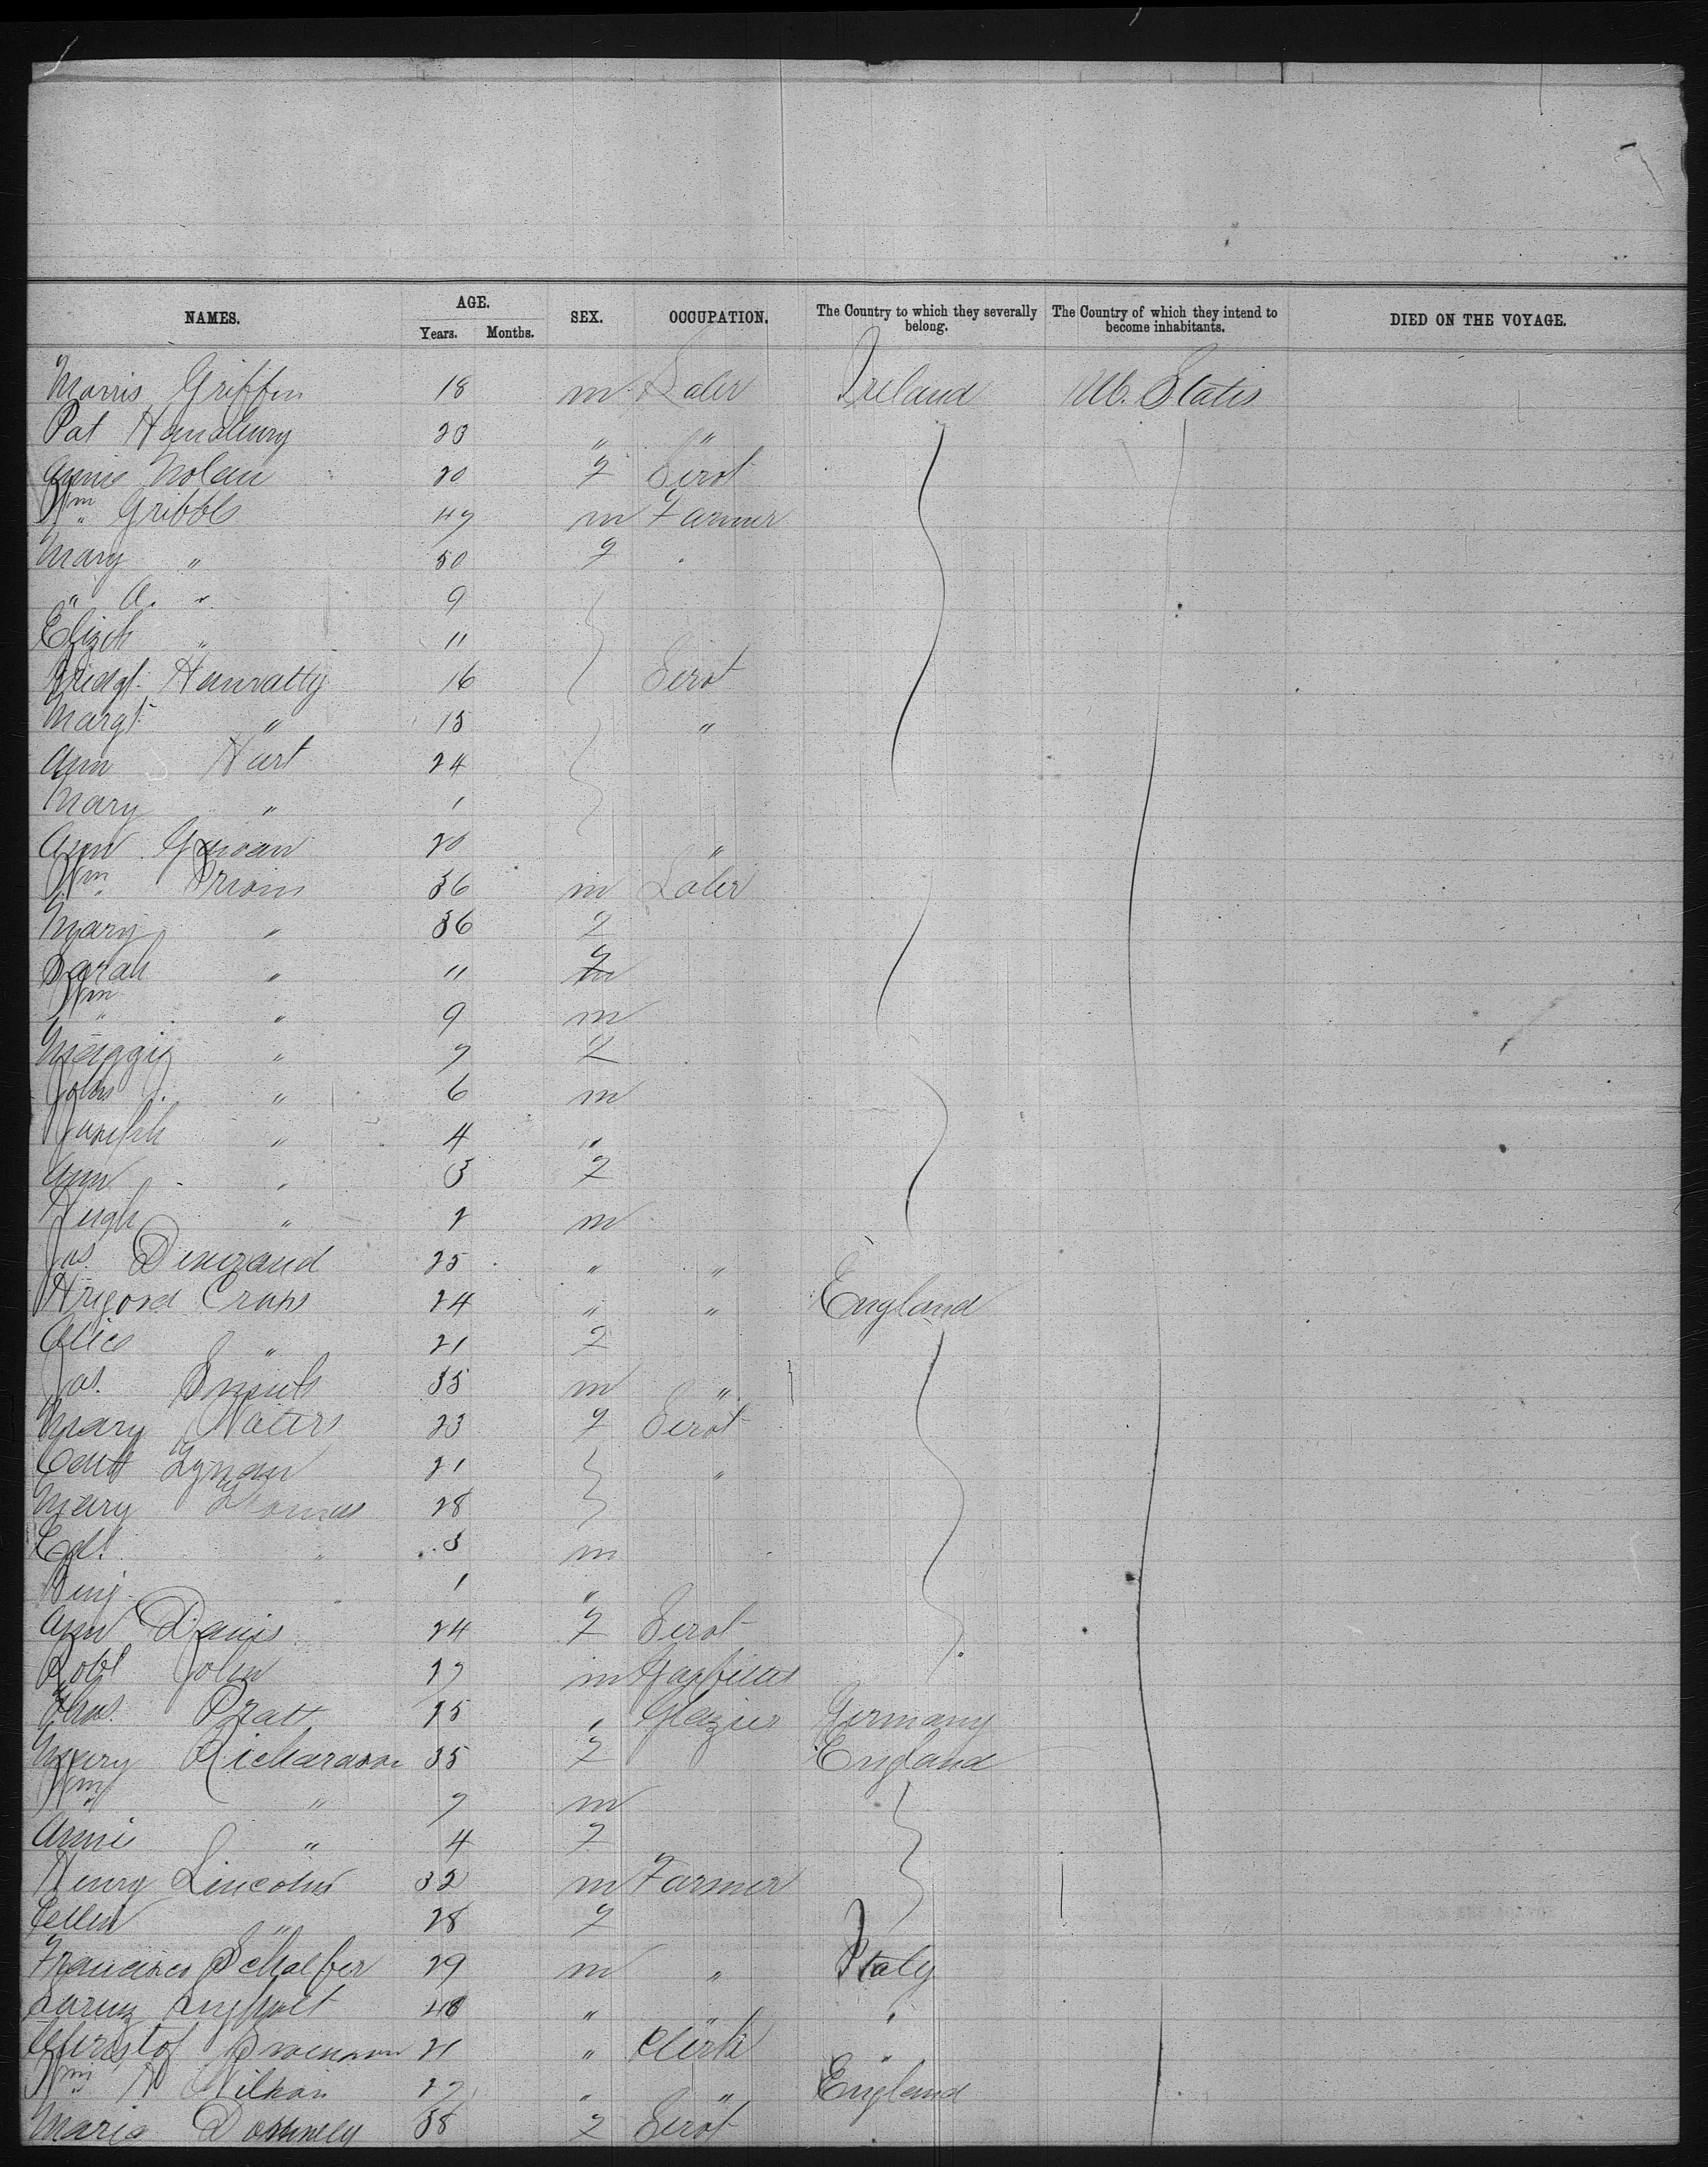 NAMES. AGE. SEX. OCCUPATION. The Country to which they severally belong. The Country of which they intend to become inhabitants. DIED ON THE VOYAGE.
Years. Months.
Morris Griffin 18 m Labr Ireland U. States
Pat 23 " "
Annie Nolan 20 f Servt
Wm Gribble 47 m Farmer
Mary " 50 f
" A. " 9
Elizth " 11
Bridgt Hanratty 16 Servt
Margt " 15 "
Ann Hart 24
Mary " 1
Ann 20 "
Wm 36 m Labr
Mary " 36 f
Sarah " 11 f
Wm " 9 m
Maggie " 7 f
John " 6 m
Joseph " 4 "
Ann " 3 f
Hugh " 2 m
Jas. 25 " "
24 " " England
Alice " 21 f
Jas. 35 m "
Mary Waters 23 f Servt
Cath 21 "
Mary Thomas 28
Ed. " 3 m
Benj " 1 "
Ann Davis 24 f Servt
Robt John 27 m
Chas. Pratt 25 " Glazier Germany
Mary Richardson 35 f England
Wm " 7 m
Annie " 4 f
Henry Lincoln 32 m Farmer
Ellen " 28 f
Francisco Schaefer 29 m " Italy
Lorenz 48 " "
Christof 21 " Clerk "
Wm H 27 " " England
Maria Donnelly 38 f Servt